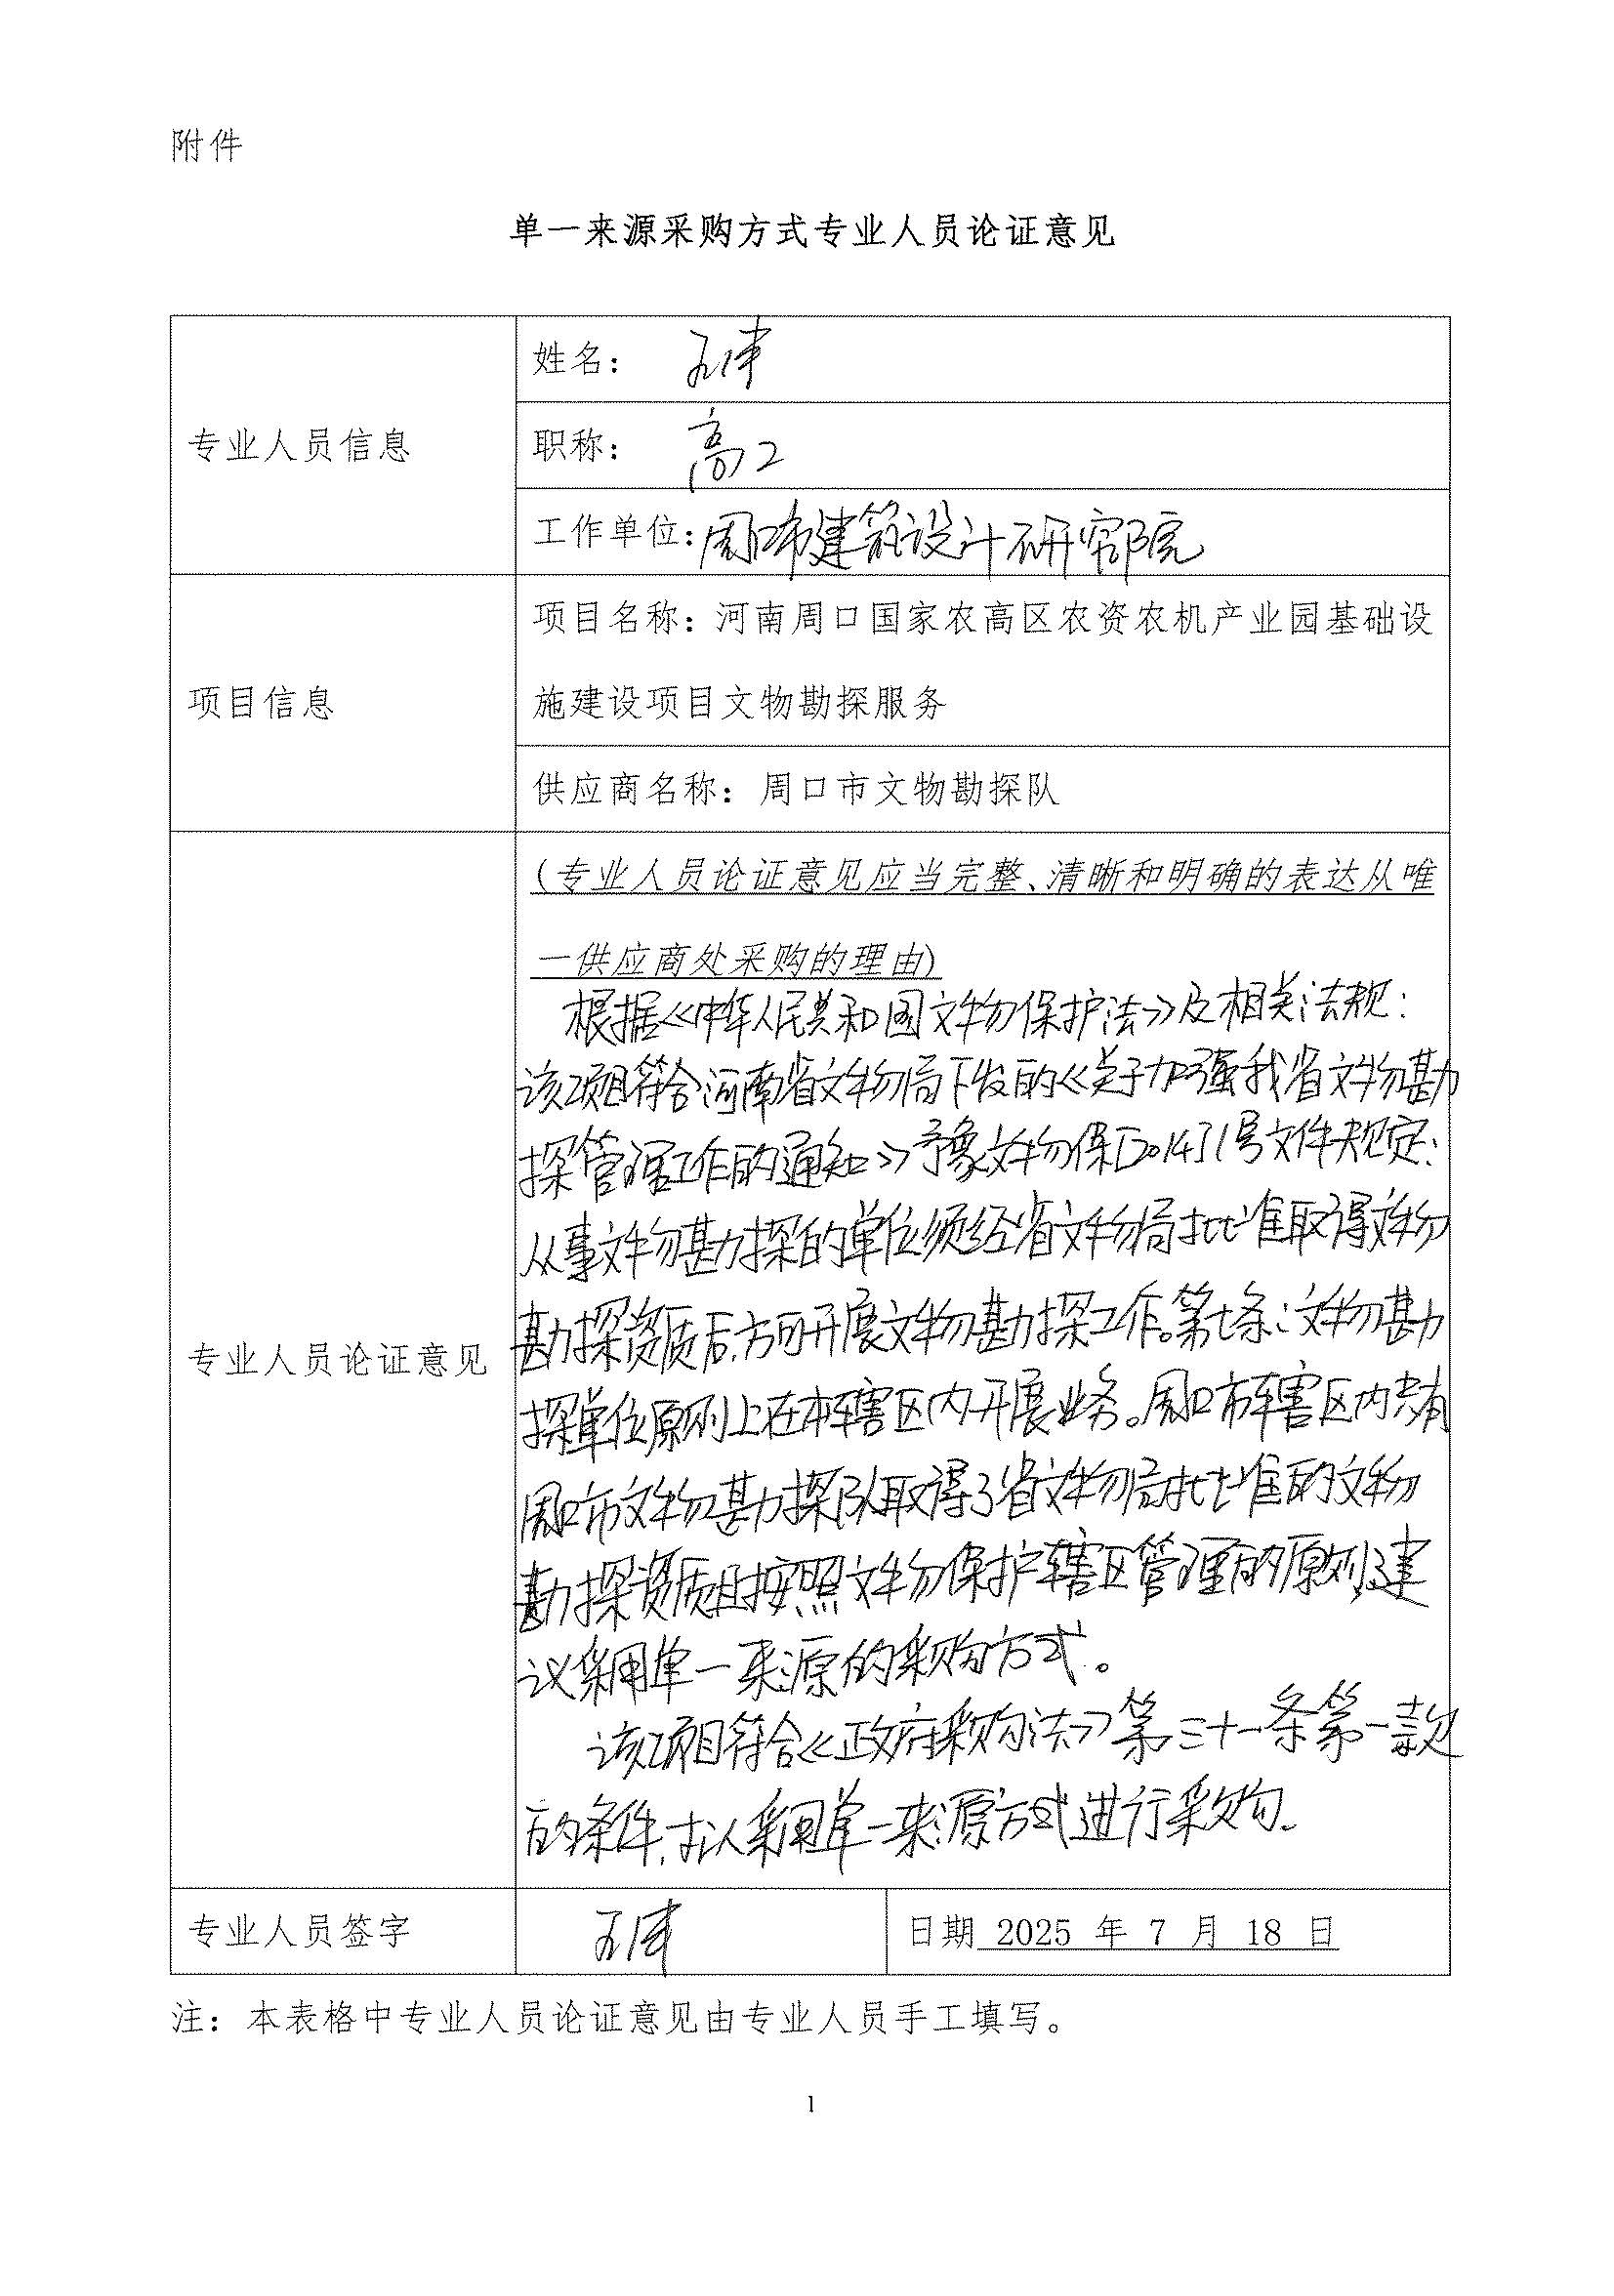 附件
单一来源采购方式专业人员论证意见
专业人员信息
姓名：
职称：高工
工作单位：周口市建筑设计研究院
项目信息
项目名称：河南周口国家农高区农资农机产业园基础设
施建设项目文物勘探服务
供应商名称：周口市文物勘探队
专业人员论证意见
（专业人员论证意见应当完整、清晰和明确的表达从唯
一供应商处采购的理由）
根据《中华人民共和国文物保护法》及相关法规：
该项目符合河南省文物局下发的《关于加强我省文物勘
探管理工作的通知》豫文物保[2014]1号文件规定：
从事文物勘探的单位须经省文物局批准取得文物
勘探资质后，方可开展文物勘探工作。第七条：文物勘
探单位原则上在本辖区内开展业务。周口市辖区内只有
周口市文物勘探队取得了省文物局批准的文物
勘探资质且按照文物保护辖区管理的原则，建
议采用单一来源的采购方式。
该项目符合《政府采购法》第三十一条第一款
的条件，拟采用单一来源方式进行采购。
专业人员签字
日期 2025 年 7 月 18 日
注：本表格中专业人员论证意见由专业人员手工填写。
1